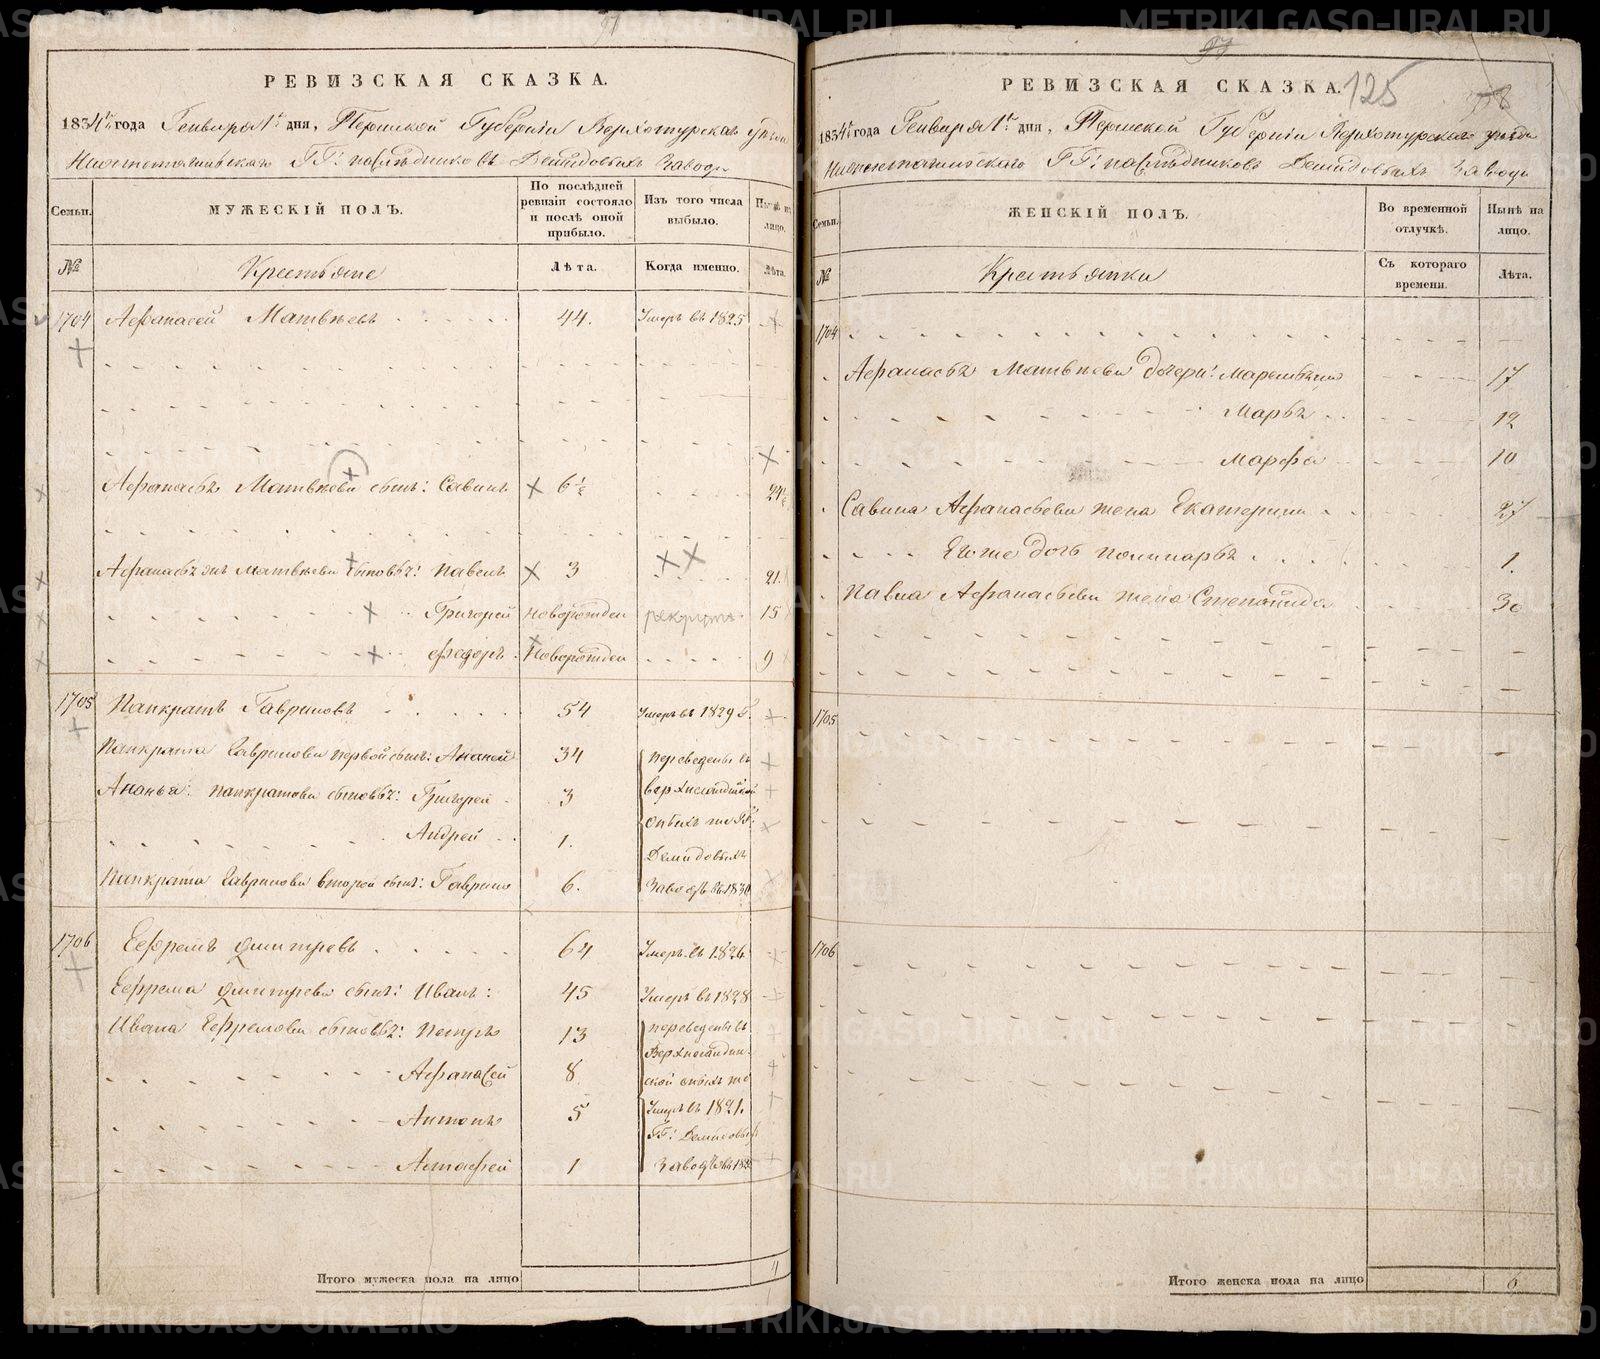 97
РЕВИЗСКАЯ СКАЗКА.
1834го года Генваря 1го дня, Пермской Губернии Верхотурскаго уезда
Нижнетагильскаго ГГ: наследниковъ Демидовыхъ завода
Семьи.
МУЖЕСКІЙ ПОЛЪ.
По послѣдней ревизіи состояло и послѣ оной прибыло.
Изъ того числа выбыло.
Нынѣ на лицо.
№
Крестьяне
Лѣта.
Когда именно.
Лѣта.
1704 Афанасей Матвѣевъ 44. Умеръ въ 1825
Афанасья Матвѣева сынъ: Савинъ 6½ 24½
Афанасья Матвѣева сыновья: Павелъ 3 21.
Григорей новорожден рекрутъ 15
Федоръ Новорожден 9
1705 Панкратъ Гавриловъ 54 Умеръ въ 1829 г.
Панкрата Гаврилова первой сынъ: Ананей 34 переведены въ
Ананья: Панкратова сыновья: Григорей 3
Андрей 1. Демидовыхъ
Панкрата Гаврилова второй сынъ: Гаврило 6. заводъ въ 1830
1706 Ефремъ Дмитріевъ 64 Умеръ въ 1826
Ефрема Дмитріева сынъ: Иванъ: 45 Умеръ въ 1828
Ивана Ефремова сыновья: Петръ 13 переведены въ
Афанасей 8
Антонъ 5 Умеръ въ 1821.
ГГ: Демидовыхъ
Астафей 1
Итого мужеска пола на лицо 4
РЕВИЗСКАЯ СКАЗКА.
125
1834го года Генваря 1го дня, Пермской Губернии Верхотурскаго уезда
Нижнетагильскаго ГГ: наследниковъ Демидовыхъ завода
Семьи.
ЖЕНСКІЙ ПОЛЪ.
Во временной отлучкѣ.
Нынѣ на лицо.
№
Крестьянки
Съ котораго времени.
Лѣта.
1704
Афанасья Матвѣева дочери: Маремьяна 17
Марья 12
Марфа 10
Савина Афанасьева жена Екатерина 27
Егоже дочь 1.
Павла Афанасьева жена Степанида 30
1705
1706
Итого женска пола на лицо 6
METRIKI.GASO-URAL.RU